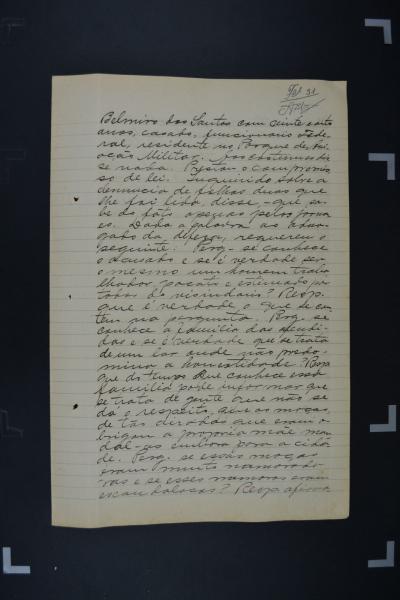 Fol 31
Belmiro dos Santos com vinte e oito
anos, casado, funcionario Fede-
ral, residente no Parque de Avi-
ação Militar. Aos costumes dis-
se nada. Prestou o compromis-
so de lei. Inquirido sobre a
denuncia de folhas duas que
lhe foi lida, disse, que sa-
be do fato apenas pelos jorna-
es. Dada a palavra ao advo-
gado da defeza, requereu o
seguinte: Perg. se conhece
o acusado e se é verdade ser
o mesmo um homem traba-
lhador, pacato e estimado por
todos da visinhans? Resp.
que é verdade o que se con-
tem na pergunta. Perg. se
conhece a familia das ofendi-
das e se é verdade que se trata
de um lar onde não predo-
mina a honestidade? Resp.
que do tempo que conhece essa
familia pode informar que
se trata de gente que não se
dá o respeito, que as moças,
de tão levadas que eram o-
brigam a propria mãe man-
dal-as embora para a cida-
de. Perg. se essas moças
eram muito namorado-
ras e se esses namoros eram
escandalosos? Resp. afirma